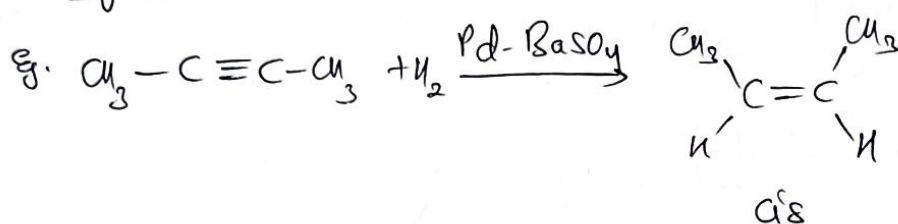 Eg. CH₃ — C ≡ C – CH₃ + H₂ Pd-BaSO₄ CH₃ CH₃
C = C
H H
cis